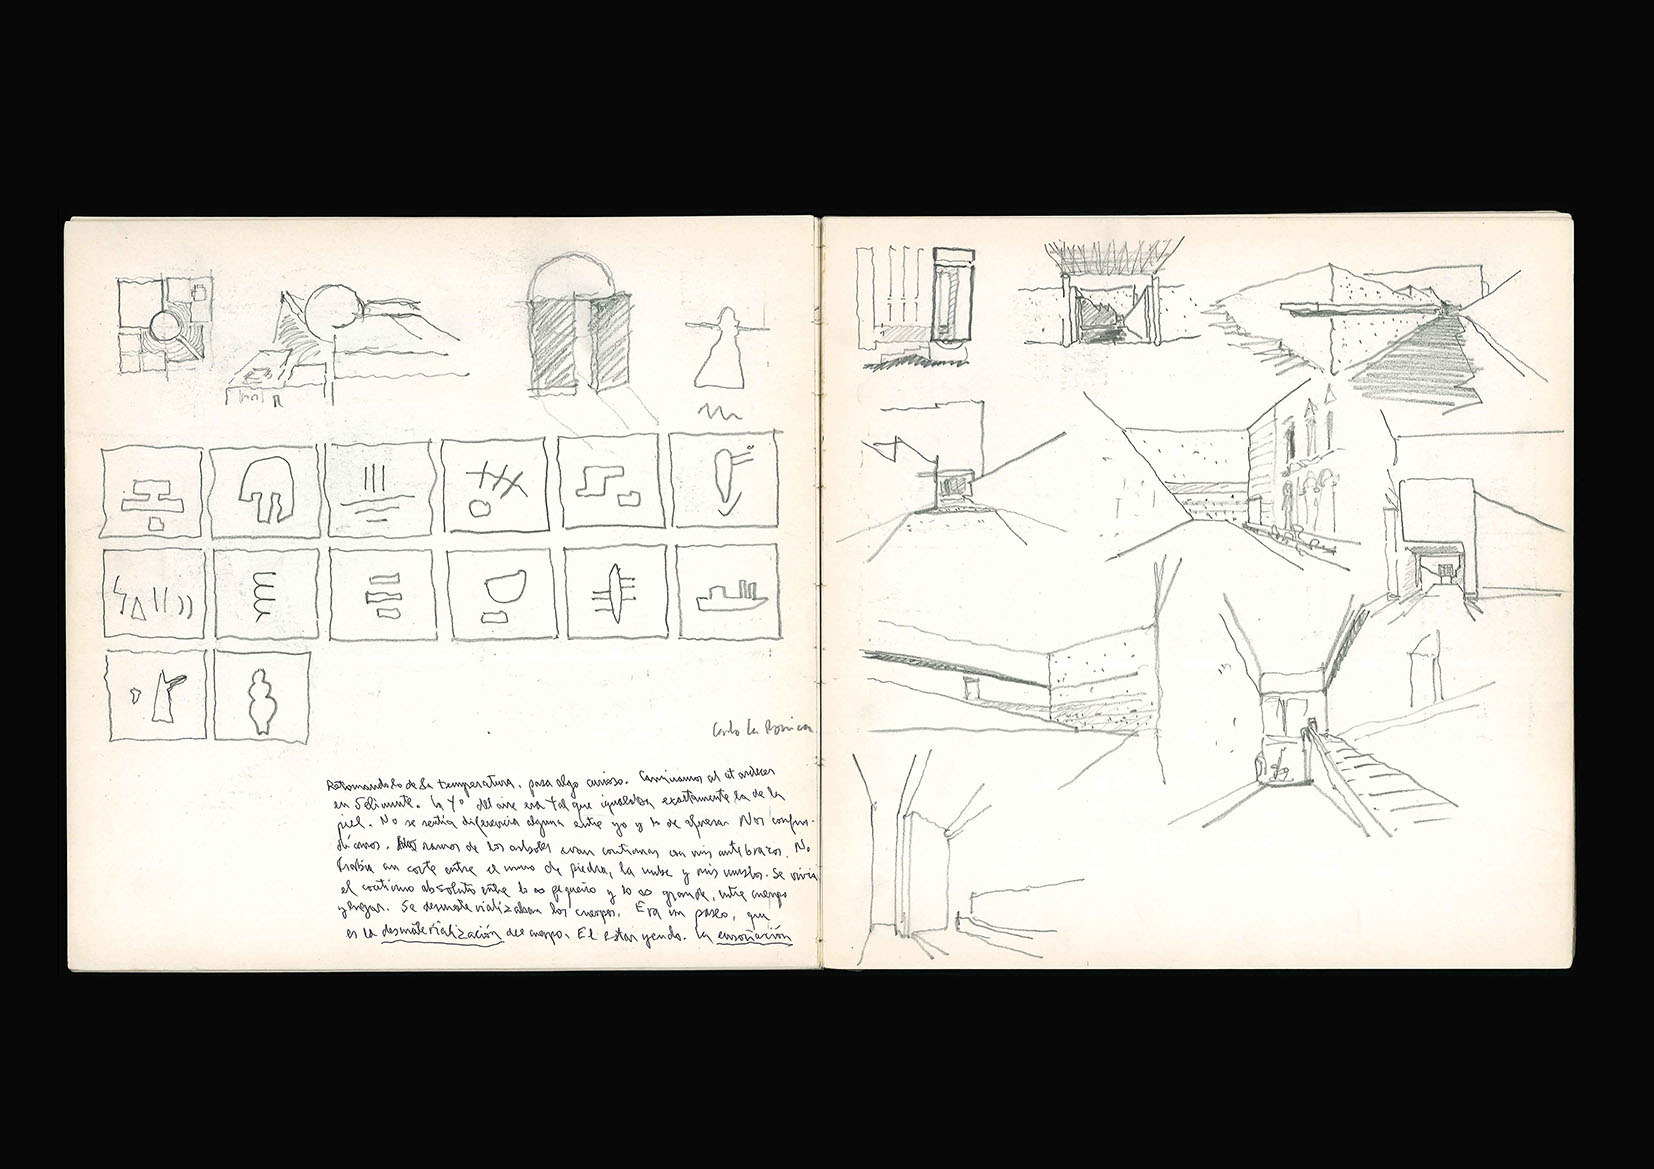 Carlo La
Retomando lo de la temperatura, pasa algo curioso. Caminamos al atardecer
en Selinunte. La Tº del aire era tal que igualaba exactamente la de la
piel. No se sentía diferencia alguna entre yo y lo de afuera. Nos confun-
díamos. ramos de los arboles eran continuas con mis antebrazos. No
había un corte entre el muro de piedra, la nube y mis muslos. Se vivía
el continuo absoluto entre lo ∞ pequeño y lo ∞ grande, entre cuerpo
y lugar. Se desmaterializaban los cuerpos. Era un paseo, que
es la desmaterialización del cuerpo. El estar yendo. La ensoñación